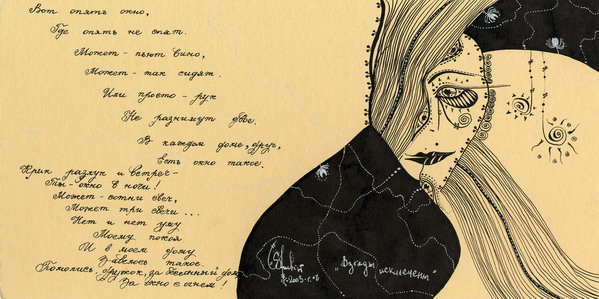 Вот опять окно,
Где опять не спят.
Может - пьют вино,
Может - так сидят.
Или просто - рук
Не разнимут двое.
В каждом доме, друг,
Есть окно такое.
Крик разлук и встреч -
Ты - окно в ночи!
Может - сотни свеч,
Может три свечи...
Нет и нет уму
Моему покоя
И в моем дому
Завелось такое.
Помолись, дружок, за бессонный дом,
За окно с огнем!
"Взгляды